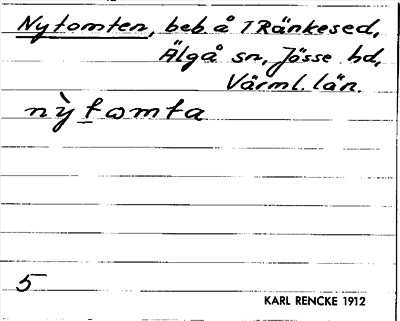 Nytomten, beb. å Ränkesed,
Älgå sn, Jösse hd,
Värml. län.
nỳtomta
5
KARL RENCKE 1912